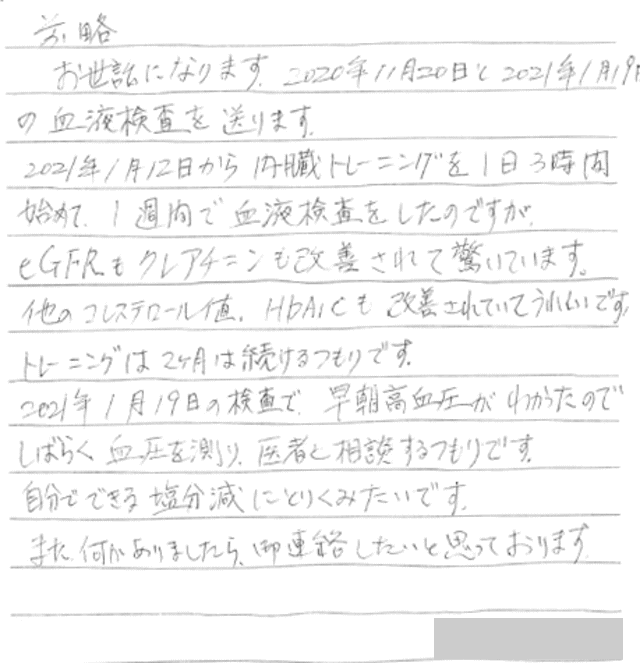 前略
お世話になります。2020年11月20日と2021年1月19日
の血液検査を送ります。
2021年1月12日から内臓トレーニングを1日3時間
始めて、1週間で血液検査をしたのですが、
eGFRもクレアチニンも改善されて驚いています。
他のコレステロール値、HbA1cも改善されていてうれしいです。
トレーニングは2ヶ月は続けるつもりです。
2021年1月19日の検査で、早朝高血圧がわかったので
しばらく血圧を測り、医者と相談するつもりです。
自分でできる塩分減にとりくみたいです。
また、何かありましたら、御連絡したいと思っております。